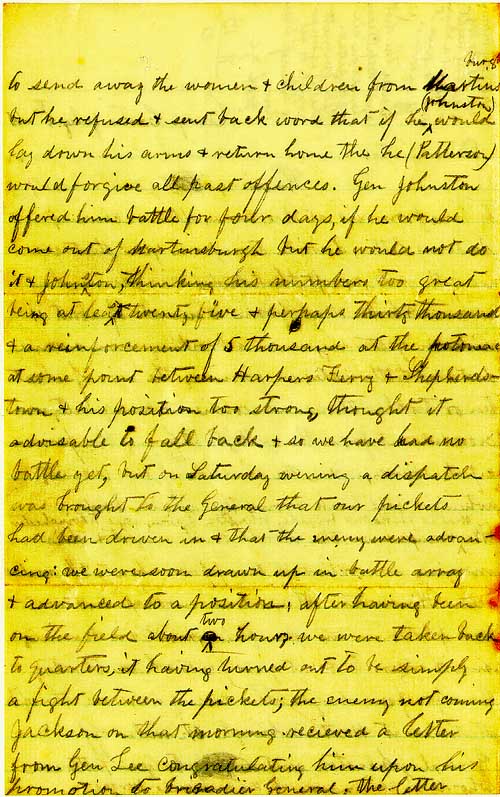 burg &
to send away the women & children from Martins
(Johnston)
but he refused & sent back word that if he ^ would
lay down his arms & return home the he (Patterson)
would forgive all past offences. Gen Johnston
offered him battle for four days, if he would
come out of Martinsburgh but he would not do
it & Johnston, thinking his numbers too great
being at least twenty five & perhaps thirty thousand
& a reinforcement of 5 thousand at the potomac
at some point between Harpers Ferry & Shepherds-
town & his position too strong, thought it
advisable to fall back & so we have had no
battle yet, but on Saturday evening a dispatch
was brought to the General that our pickets
had been driven in & that the enemy were advan-
cing: we were soon drawn up in battle array
& advanced to a position; after having been
two
on the field about ^ hours we were taken back
to quarters, it having turned out to be simply
a fight between the pickets; the enemy not coming
Jackson on that morning recieved a letter
from Gen Lee congratulating him upon his
promotion to brigadier General. the letter